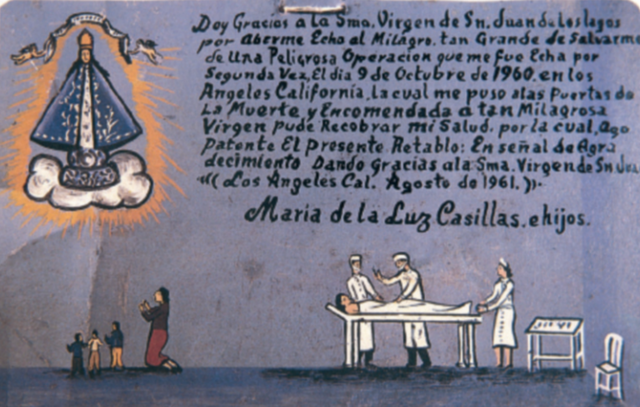 Doy Gracias a la Sma. Virgen de Sn. Juan de Los lagos
por aberme Echo al Milagro. tan Grande de Salvarme
de Una Peligrosa Operacion que me fue Echa por
Segunda Vez, El dia 9 de Octubre de 1960. en los
Angeles California, la cual me puso alas Puertas de
La Muerte y Encomendada a tan Milagrosa
Virgen pude Recobrar mi Salud. por la cual, ago
Patente El presente Retablo: En señal de Agra
decimiento Dando Gracias ala Sma. Virgen de Sn Jua
(( Los Angeles Cal. Agosto de 1961. )).
Maria de la Luz Casillas. e hijos.